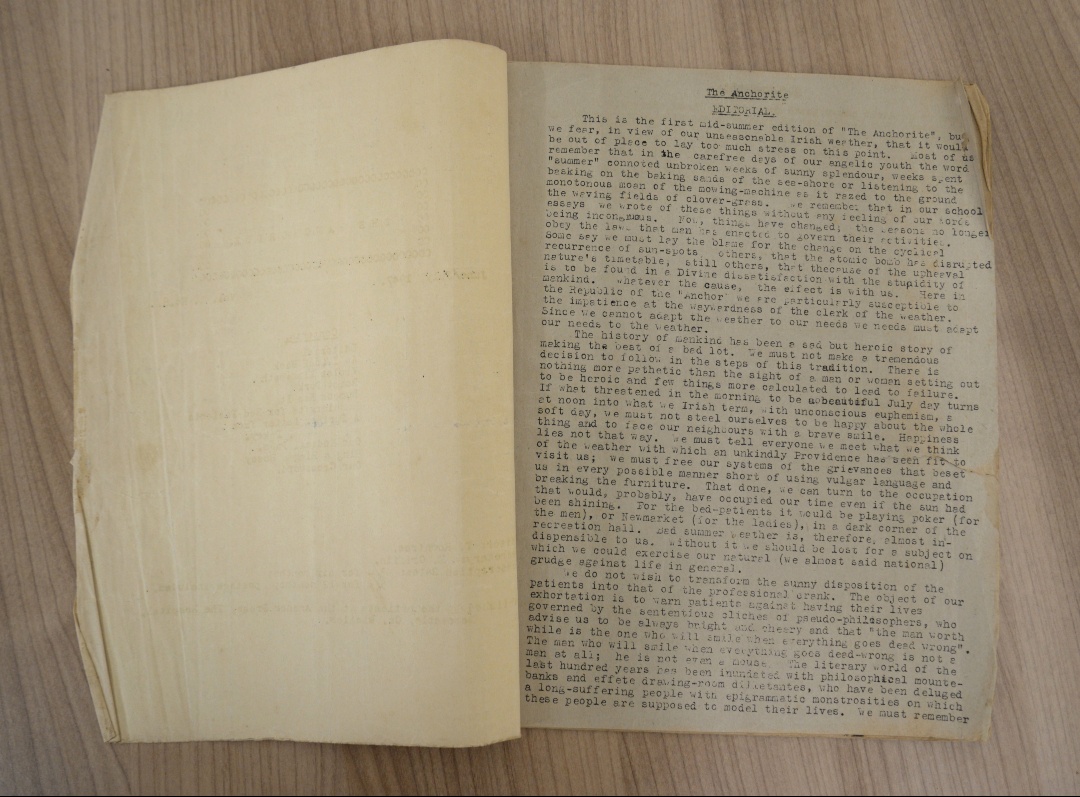 The Anchorite
EDITORIAL.
This is the first mid-summer edition of "The Anchorite", but
we fear, in view of our unseasonable Irish weather, that it would
be out of place to lay too much stress on this point. Most of us
remember that in the carefree days of our angelic youth the word
"summer" connoted unbroken weeks of sunny splendour, weeks spent
basking on the baking sands of the sea-shore or listening to the
monotonous moan of the mowing-machine as it razed to the ground
the waving fields of clover-grass. We remember that in our school
essays we wrote of these things without any feeling of our words
being incongruous. Now, things have changed; the seasons no longer
obey the laws that man has enacted to govern their activities.
Some say we must lay the blame for the change on the cyclical
recurrence of sun-spots others, that the atomic bomb has disrupted
nature's timetable, still others, that thecause of the upheaval
is to be found in a Divine dissatisfaction with the stupidity of
mankind. Whatever the cause, the effect is with us. Here in
the Republic of the "Anchor" we are particularly susceptible to
the impatience at the waywardness of the clerk of the weather.
Since we cannot adapt the weather to our needs we needs must adapt
our needs to the weather.
The history of mankind has been a sad but heroic story of
making the best of a bad lot. We must not make a tremendous
decision to follow in the steps of this tradition. There is
nothing more pathetic than the sight of a man or woman setting out
to be heroic and few things more calculated to lead to failure.
If what threatened in the morning to be a beautiful July day turns
at noon into what we Irish term, with unconscious euphemism, a
soft day, we must not steel ourselves to be happy about the whole
thing and to face our neighbours with a brave smile. Happiness
lies not that way. We must tell everyone we meet what we think
of the weather with which an unkindly Providence has seen fit to
visit us; we must free our systems of the grievances that beset
us in every possible manner short of using vulgar language and
breaking the furniture. That done, we can turn to the occupation
that would, probably, have occupied our time even if the sun had
been shining. For the bed-patients it would be playing poker (for
the men), or Newmarket (for the ladies), in a dark corner of the
recreation hall. Bad summer weather is, therefore, almost in-
dispensible to us. Without it we should be lost for a subject on
which we could exercise our natural (we almost said national)
grudge against life in general.
We do not wish to transform the sunny disposition of the
patients into that of the professional crank. The object of our
exhortation is to warn patients against having their lives
governed by the sententious cliches of pseudo-philosophers, who
advise us to be always bright and cheery and that "the man worth
while is the one who will smile when everything goes dead wrong".
The man who will smile when everything goes dead-wrong is not a
man at all; he is not even a mouse. The literary world of the
last hundred years has been inundated with philosophical mounte-
banks and effete drawing-room dilletantes, who have been deluged
a long-suffering people with epigrammatic monstrosities on which
these people are supposed to model their lives. We must remember